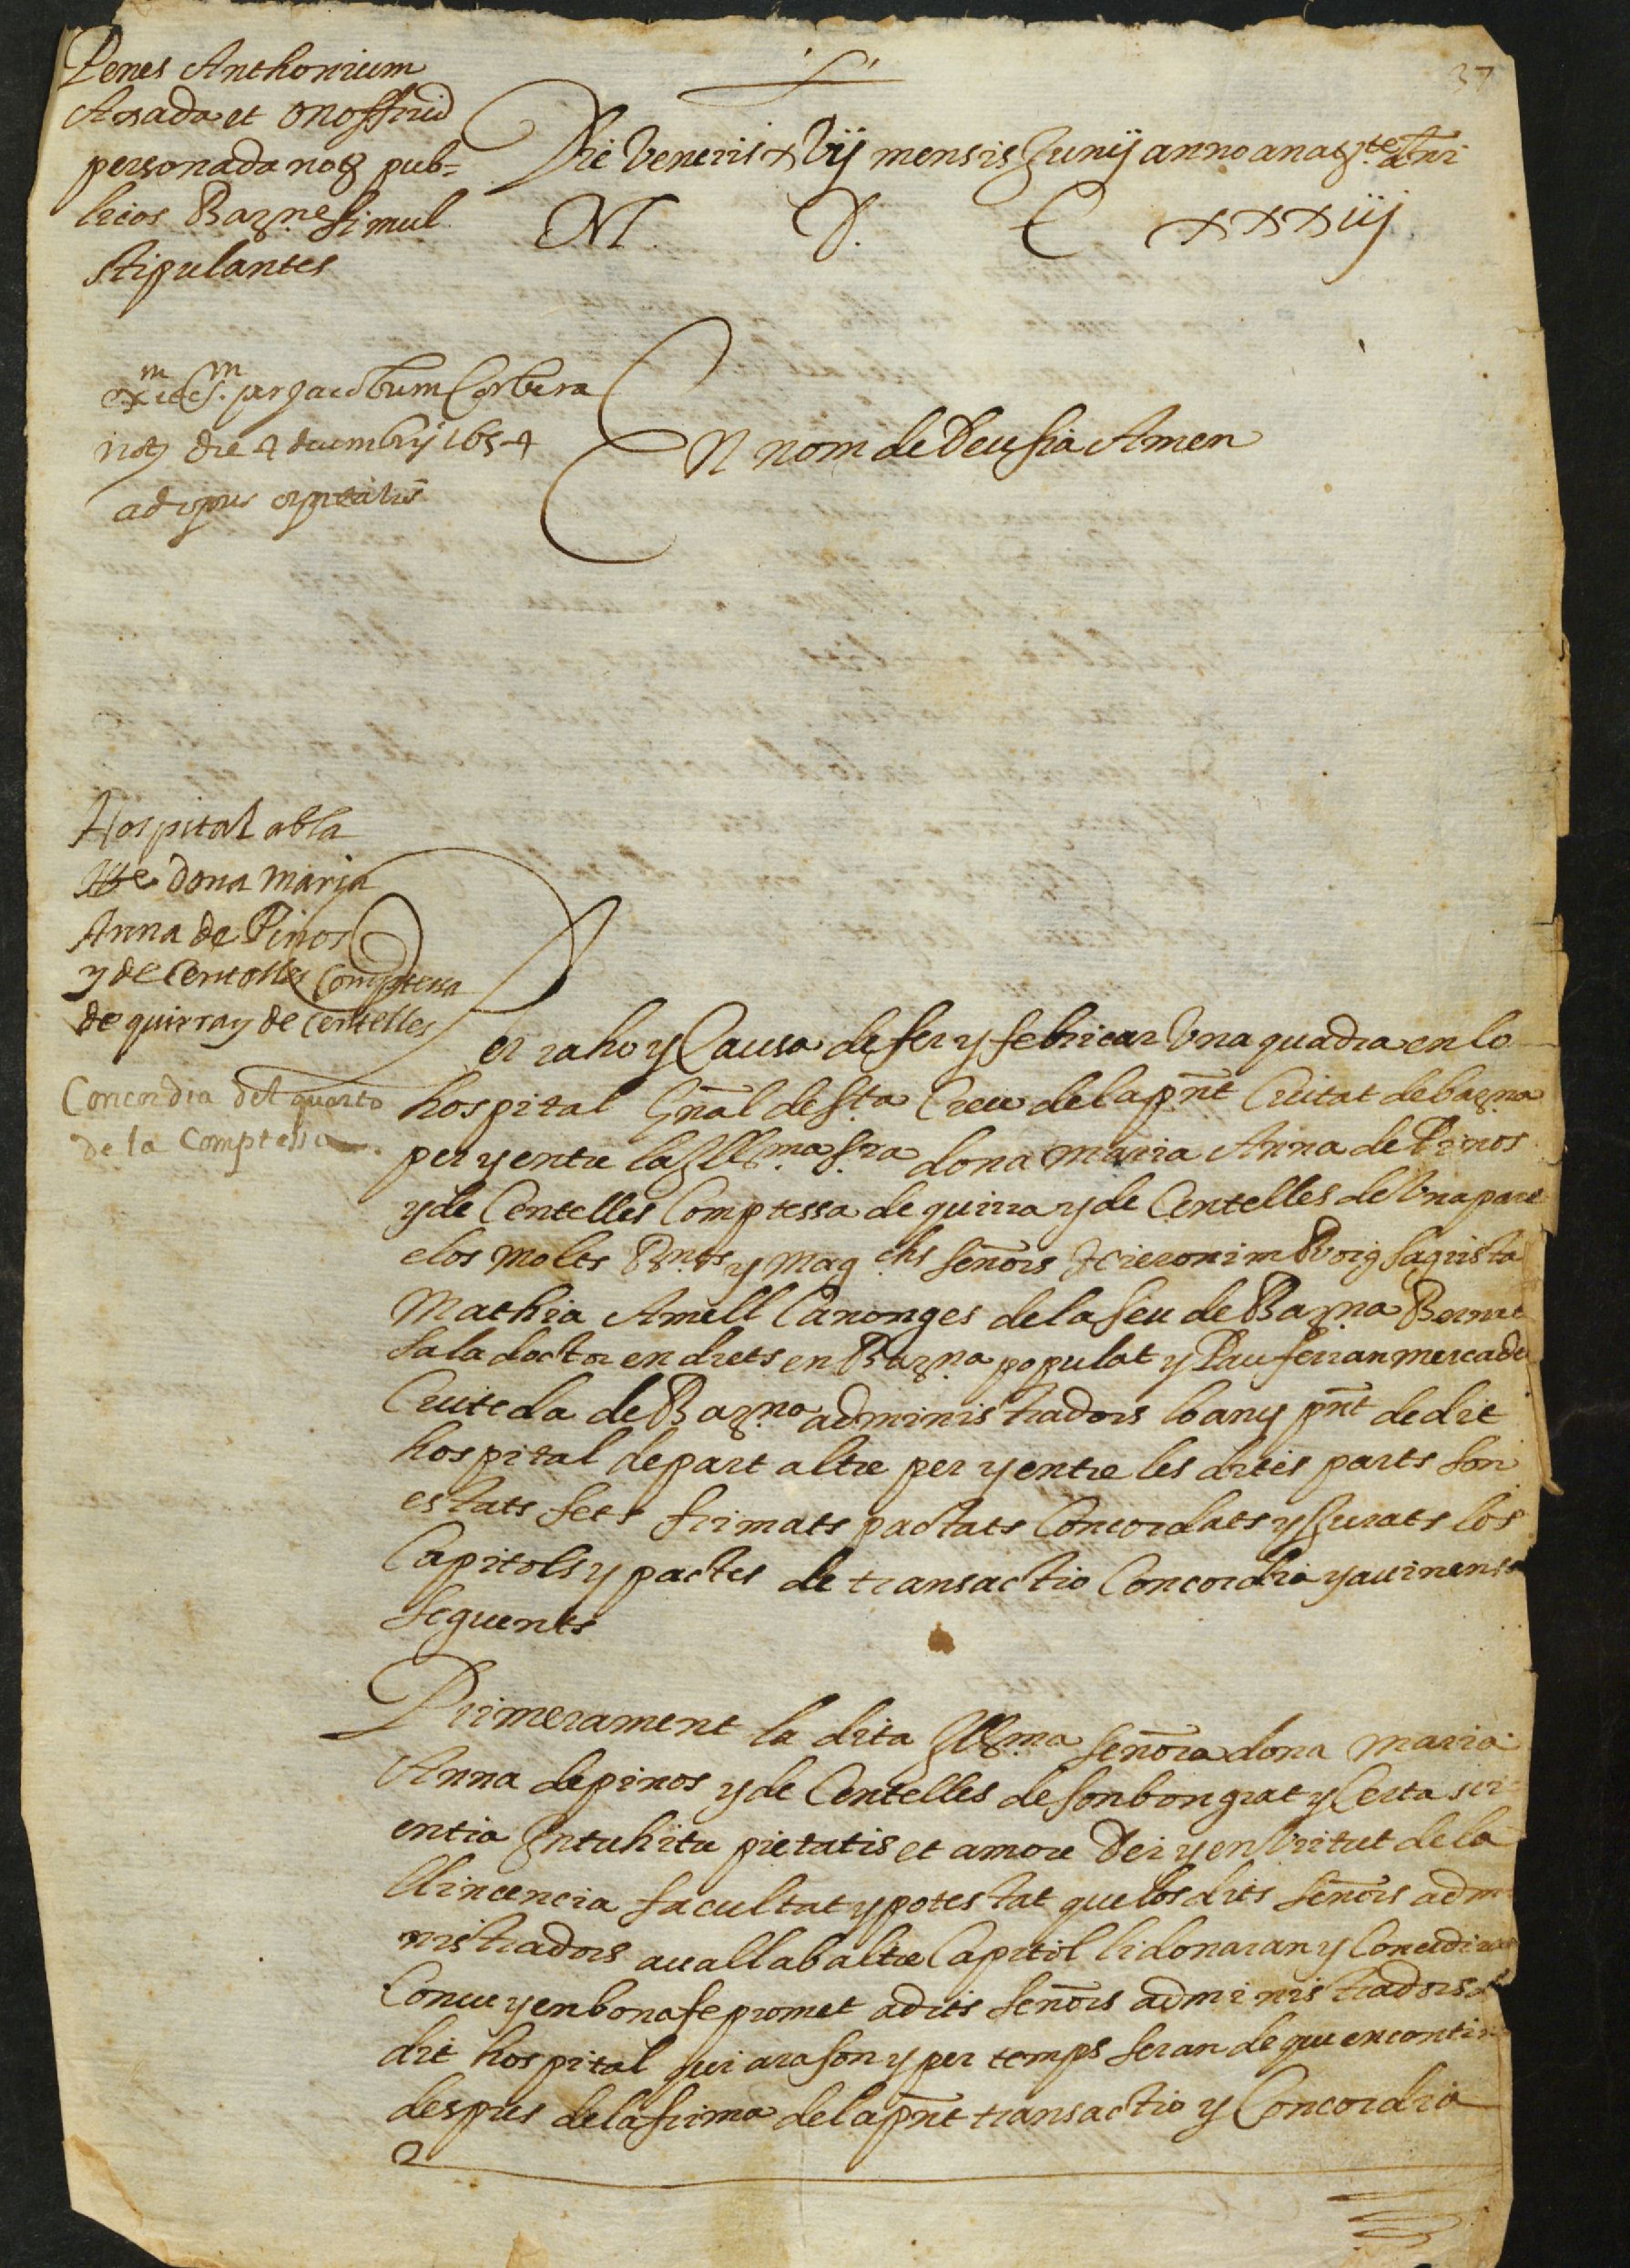 37
Penes Anthonium
Asada et Onoffriũ
personada nots pub=
licos Barne. simul
stipulantes
Die Veneris xvij mensis Junij anno a natte. Dni
M. D. C xxxiij
per Jacobum Corbera
not die 4 decembrij 1654
ad opus
En nom de Deu sia Amen
Hospital ab la
Illе dona maria
Anna de Pinos
y de Centelles Comptessa
de quirra y de Centelles
Concordia del quarto
de la Comptessa.
Per raho y Causa de fer y febricar Una quadra en lo
hospital Gñal de Sta Creu de la pñt Ciutat de barna
per y entre la Illma. Sra. dona maria Anna de Pinos
y de Centelles Comptessa de quirra y de Centelles de Una part
e los molts Rnts y magchs señors Hieronim Roig sagrista
Mathia Amell Canonges de la seu de Barna. Bernat
Sala doctor en drets en Barna. populat y Pau ferran mercader
Ciuteda de Barna. administradors lo any pñt de dit
hospital de part altre per y entre les dites parts son
estats fets firmats pactats Concordats y Jurats los
Capitols y pactes de transactio Concordia y auinensa
seguents
Primerament la dita Illma. señora dona maria
Anna de pinos y de Centelles de son bon grat y Certa sci
entia Intuhitu pietatis et amore Dei y en Virtut de la
llincencia facultat y potestat que los dits señors admi
nistradors auall ab altre Capitol li donaran y Concediran
Conue y en bona fe promet a dits señors administradors de
dit hospital qui ara son y per temps seran de que encontinent
despres de la firma de la pñt transactio y Concordia